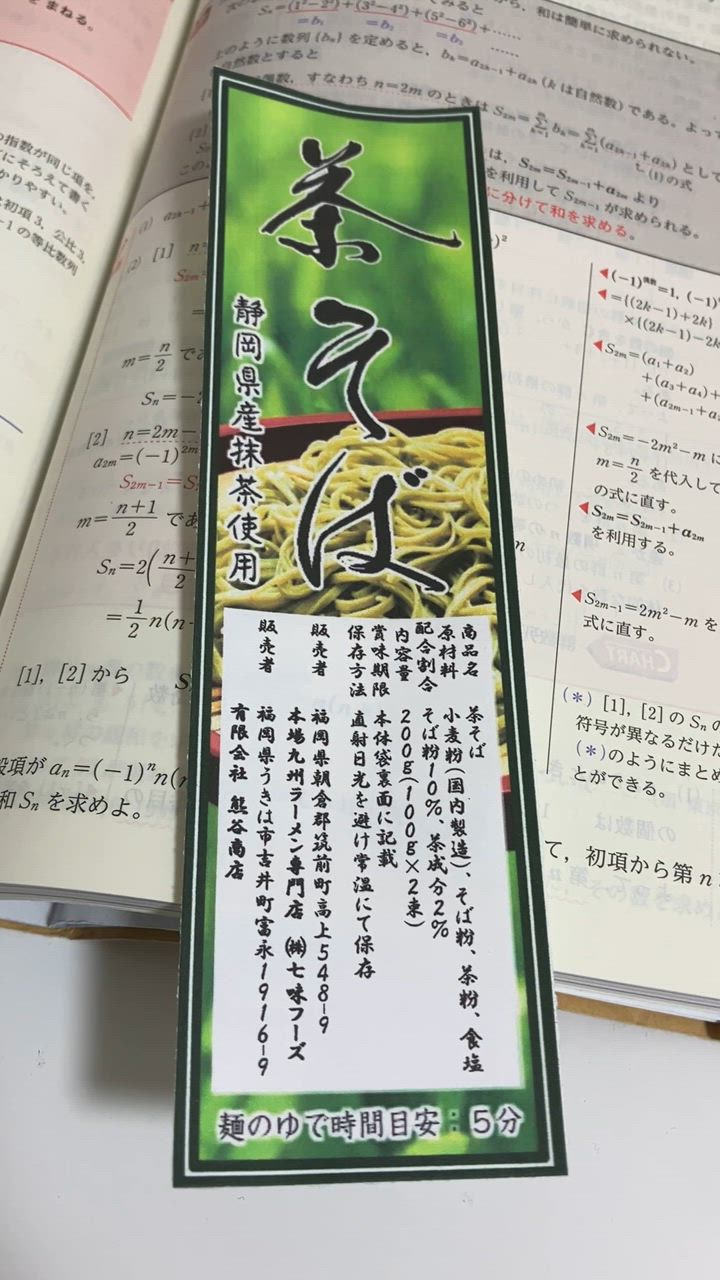 茶そば
静岡県産抹茶使用
商品名 茶そば
原材料 小麦粉(国内製造)、そば粉、茶粉、食塩
配合割合 そば粉10%、茶成分2%
内容量 200g(100g×2束)
賞味期限 本体袋裏面に記載
保存方法 直射日光を避け常温にて保存
販売者 福岡県朝倉郡筑前町高上548-9
本場九州ラーメン専門店 ㈱七味フーズ
販売者 福岡県うきは市吉井町富永1916-9
有限会社 熊谷商店
麺のゆで時間目安:5分
をまねる。
の指数が同じ項を
にそろえて書く
かりやすい。
初項3, 公比3,
-1の等比数列
Sₙ=(1²-2²)+(3²-4²)+(5²-6²)+……
=b₁ =b₂ =b₃ ……
和は簡単に求められない。
上のように数列{bₙ}を定めると, bₖ=a₂ₖ₋₁+a₂ₖ(kは自然数)である。よって
自然数とすると
偶数, すなわち n=2m のときは S₂ₘ=Σbₖ=Σ(a₂ₖ₋₁+a₂ₖ) として
(1)の式
は, S₂ₘ=S₂ₘ₋₁+a₂ₘ より
を利用して S₂ₘ₋₁ が求められる。
に分けて和を求める。
(1) a₂ₖ₋₁+
(2) [1] n=
S₂ₘ=
m=n/2 で
Sₙ=-
[2] n=2m-
a₂ₘ=(-1)²ᵐ
S₂ₘ₋₁=S
m=(n+1)/2 であ
Sₙ=2(
=1/2 n(n-
[1], [2]から
般項が aₙ=(-1)ⁿn(n
和 Sₙ を求めよ。
(-1)^偶数=1, (-1)
={(2k-1)+2k}
×{(2k-1)-2k
S₂ₘ=(a₁+a₂)
+(a₃+a₄)+
+(a₂ₘ₋₁+a
S₂ₘ=-2m²-m に
m=n/2 を代入して
の式に直す。
S₂ₘ=S₂ₘ₋₁+a₂ₘ
を利用する。
S₂ₘ₋₁=2m²-m を
式に直す。
(*) [1], [2]の Sₙ の
符号が異なるだけた
(*)のようにまとめ
とができる。
て, 初項から第n